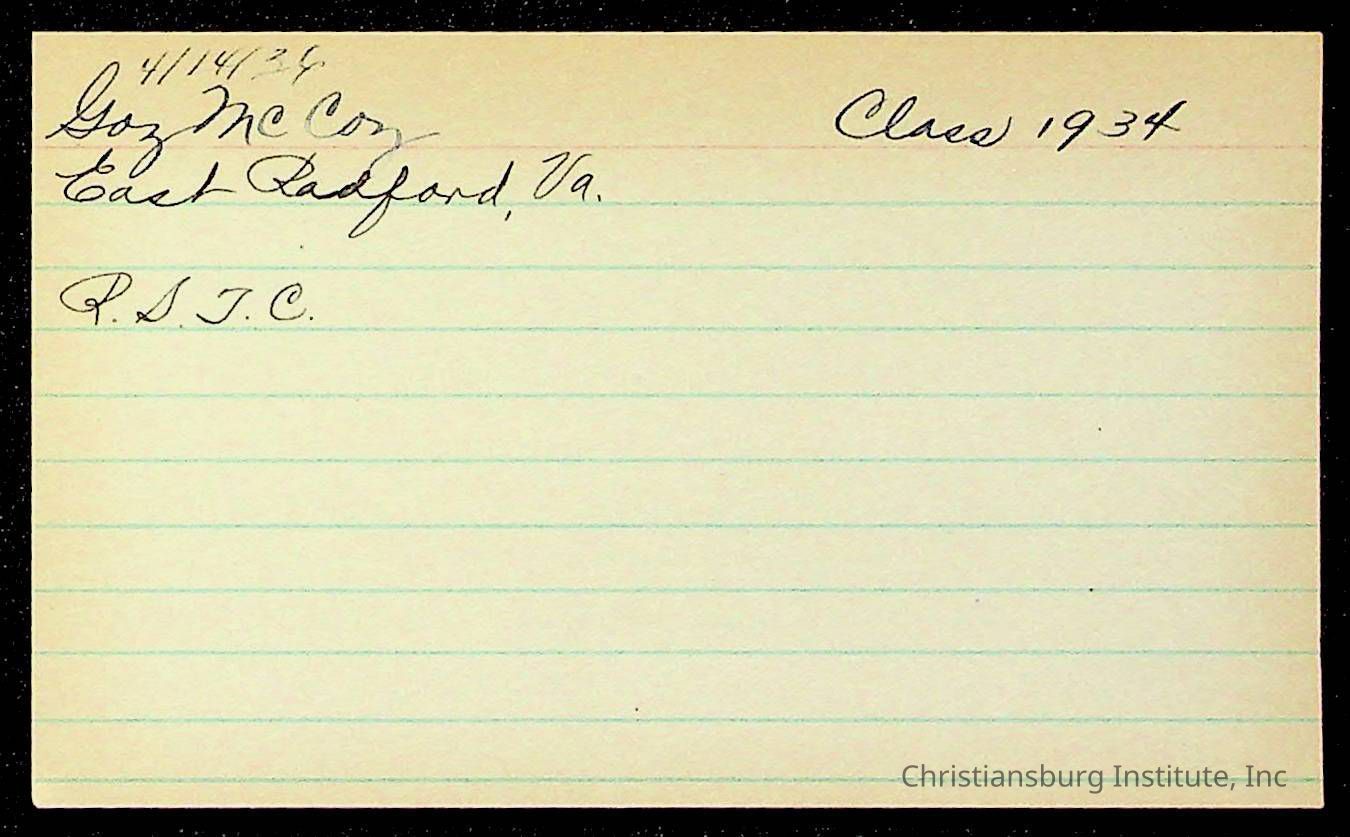 4/14/36
Goy McCoy
Class 1934
East Radford, Va.
R. S. T. C.
Christiansburg Institute, Inc